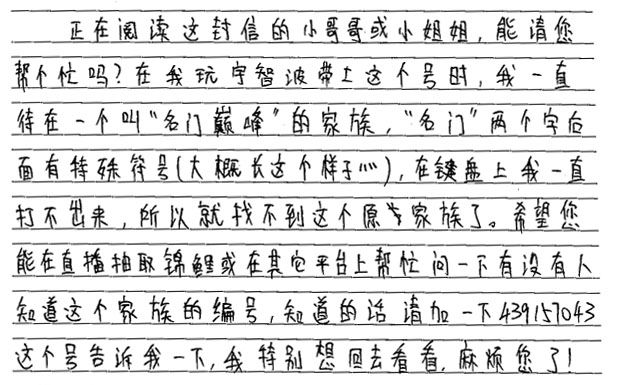 正在阅读这封信的小哥哥或小姐姐，能请您
帮个忙吗？在我玩宇智波带土这个号时，我一直
待在一个叫“名门巅峰”的家族，“名门”两个字后
面有特殊符号（大概长这个样子灬），在键盘上我一直
打不出来，所以就找不到这个原家族了。希望您
能在直播抽取锦鲤或在其它平台上帮忙问一下有没有人
知道这个家族的编号，知道的话请加一下439157043
这个号告诉我一下，我特别想回去看看，麻烦您了！